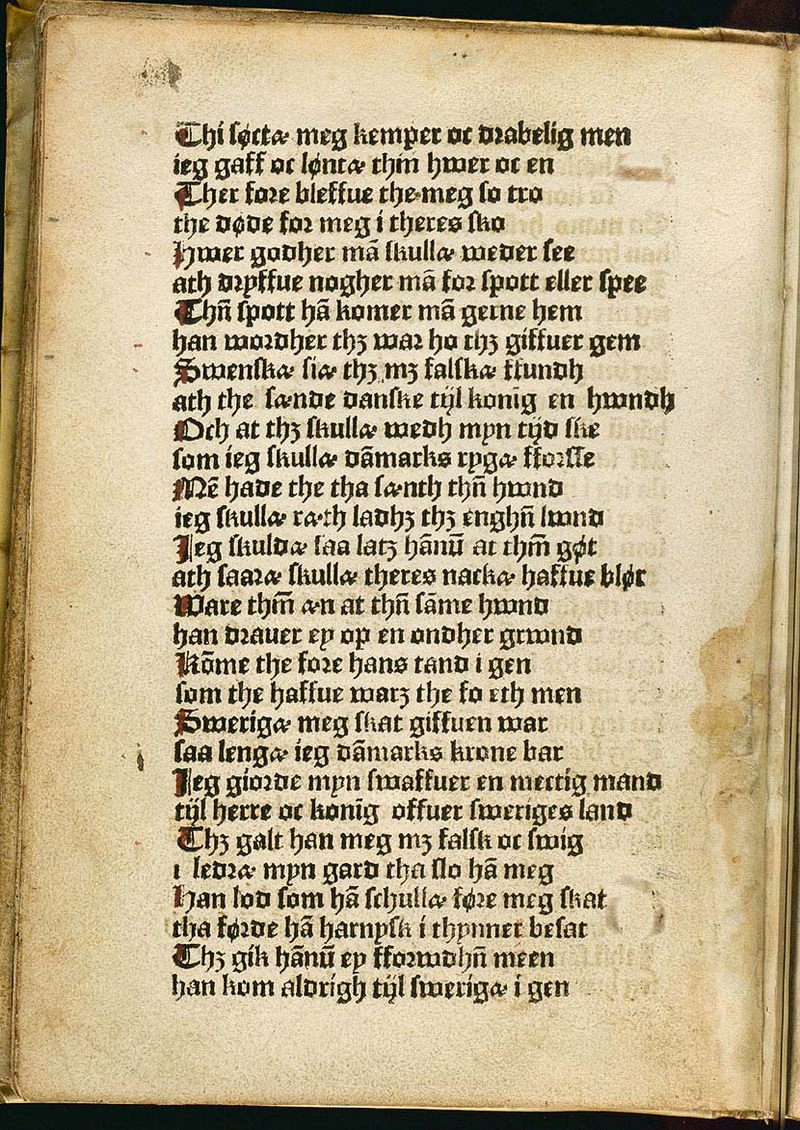 Thi søctæ meg kemper oc drabelig men
ieg gaff oc løntæ thm̄ hwer oc en
Ther fore bleffue the meg so tro
the døde for meg i theres sko
Hwer godher mā skullæ weder see
ath dryffue nogher mā for spott eller spee
Thn̄ spott hā komer mā gerne hem
han wordher thꝫ war ho thꝫ giffuer gem
Swenskæ siæ thꝫ mꝫ falskæ ffundh
ath the sænde danske tijl konig en hwndh
Och at thꝫ skullæ wedh myn tijd ske
som ieg skullæ dāmarks rygæ fforsse
Mē hade the tha sænth thn̄ hwnd
ieg skullæ ræth ladhꝫ thꝫ enghn̄ lwnd
Jeg skuldæ saa latꝫ hānū at thm̄ gøt
ath saaræ skullæ theres nackæ haffue bløt
Ware thm̄ æn at thn̄ sāme hwnd
han drauer ey op en ondher grwnd
Kōme the fore hans tand i gen
som the haffue warꝫ the fo eth men
Swerigæ meg skat giffuen war
saa lengæ ieg dāmarks krone bar
Jeg giorde myn swaffuer en mectig mand
tijl herre oc konīg offuer sweriges land
Thꝫ galt han meg mꝫ falsk oc swig
i ledræ myn gard tha slo hā meg
Han lod som hā schullæ føre meg skat
tha førde hā harnysk i thynner besat
Thꝫ gik hānū ey fforwdhn̄ meen
han kom aldrigh tijl swerigæ i gen